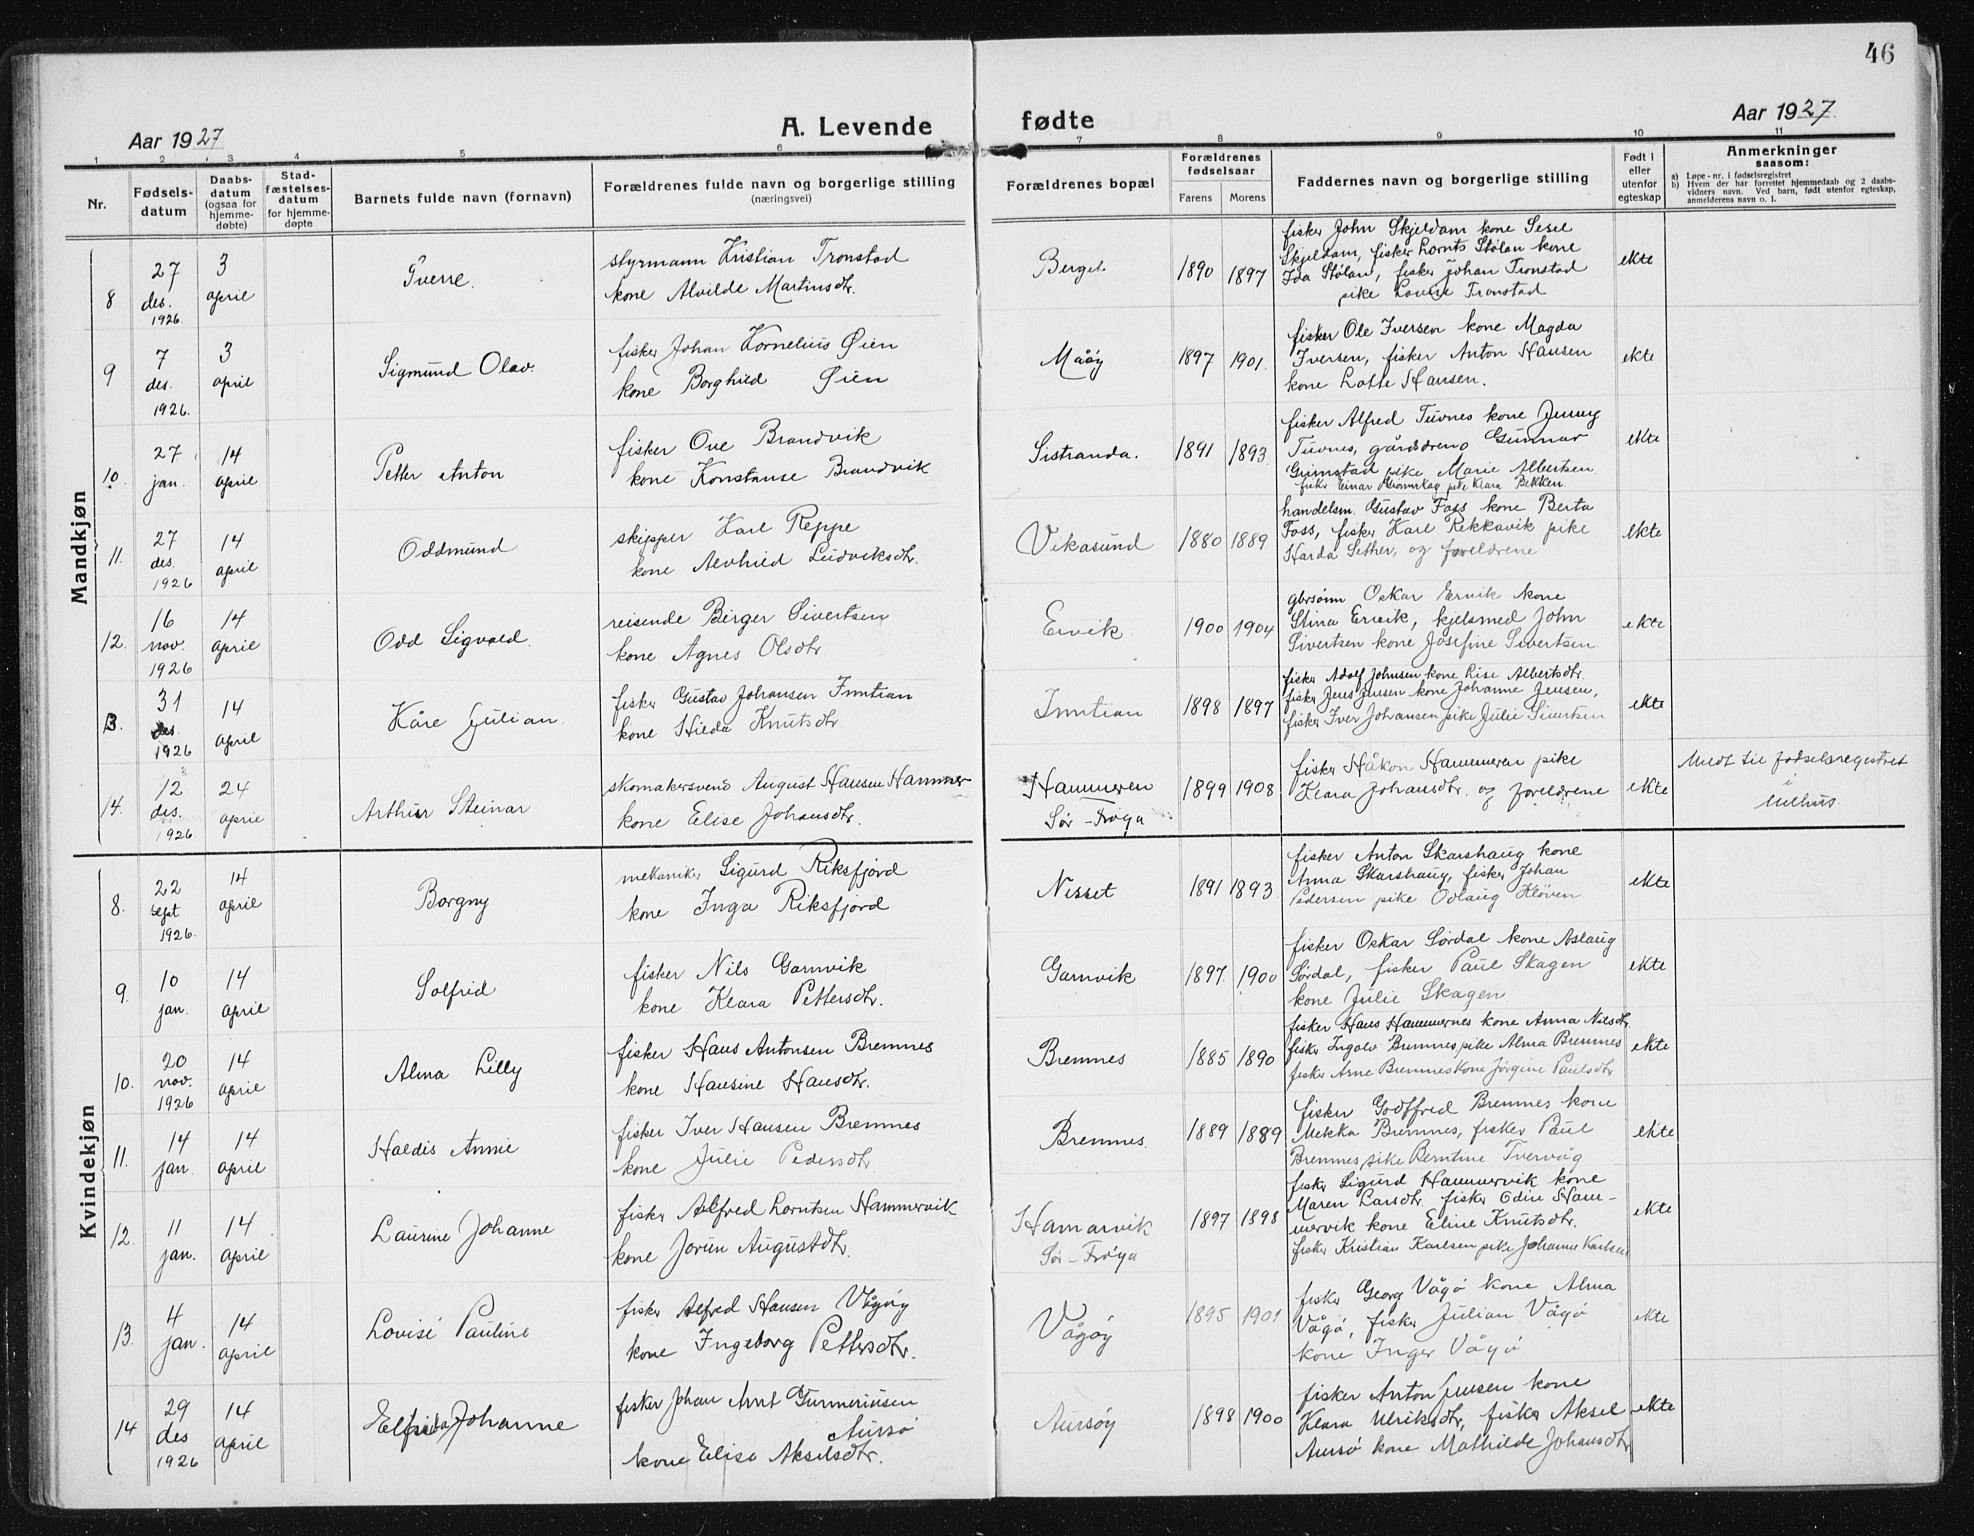 46
Aar 1927
A. Levende
fødte
Aar 1927.
1 2 3 4 5 6 7 8 9 10 11
Nr.
Fødsels-
datum
Daabs-
datum
(ogsaa for
hjemme-
døbte)
Stad-
fæstelses-
datum
for hjemme-
døpte
Barnets fulde navn (fornavn)
Forældrenes fulde navn og borgerlige stilling
(næringsvei)
Forældrenes bopæl
Forældrenes
fødselsaar
Farens Morens
Faddernes navn og borgerlige stilling
Født i
eller
utenfor
egteskap
Anmerkninger
saasom:
a) Løpe-nr. i fødselsregistret
b) Hvem der har forrettet hjemmedaab og 2 daabs-
vidners navn. Ved barn, født utenfor egteskap,
anmelderens navn o. l.
Mandkjøn
8
27
des.
1926
3
april
Sverre.
styrmann Kristian Tronstad
kone Alvilde Martinsdtr.
Berget
1890 1897
fisker John Skjeldam kone Sesel
Skjeldam, fisker Lornts Stølan kone
Ida Stølan, fisker Johan Tronstad
pike Lovise Tronstad
ekte
9
7
des.
1926.
3
april
Sigmund Olav.
fisker Johan Kornelius Øien
kone Borghild Øien
Måøy
1897 1901
fisker Ole Iversen kone Magda
Iversen, fisker Anton Hansen
kone Lotte Hansen.
ekte
10.
27
jan.
14
april
Petter Anton
fisker Ove Brandvik
kone Konstanse Brandvik
Sistranda.
1891 1893.
fisker Alfred Tuvnes kone Jenny
Tuvnes, gårddreng Gunnar
Grimstad pike Marie Albertsen
fisker Einar pike Klara Bekken.
ekte
11.
27
des.
1926
14
april
Oddmund
skipper Karl Reppe
kone Alvhild Ludviksdtr.
Vikasund
1880 1889
handelsm. Gustav Foss kone Berta
Foss, fisker Karl Rekkavik pike
Harda Sether, og foreldrene
ekte
12.
16
nov.
1926
14
april
Odd Sigvald.
reisende Birger Sivertsen
kone Agnes Olsdtr
Ervik.
1900 1904
gbrsønn Oskar Ervik kone
Stina Ervik, kjelsmed John
Sivertsen kone Josefine Sivertsen
ekte
13.
31
des.
1926
14
april
Kåre Julian.
fisker Gustav Johansen Inntian
kone Hilda Knutsdtr.
Inntian
1898 1897
fisker Adolf Johnsen kone Lise Albertsdtr.
fisker Jens Jensen kone Johanne Jensen,
fisker Iver Johansen pike Julie Sivertsen
ekte
14.
12
des.
1926
24
april
Arthur Steinar
skomakersvend August Hansen Hammer
kone Elise Johansdtr.
Hammeren
Sør-Frøya
1899 1908
fisker Håkon Hammeren pike
Klara Johansdtr. og foreldrene
ekte
Meldt til fødselsregistret
i
Melhus.
Kvindekjøn
8.
22
sept
1926.
14
april
Borgny
mekaniker Sigurd Riksfjord
kone Inga Riksfjord
Nesset
1891 1893.
fisker Anton Skarshaug kone
Anna Skarshaug, fisker Johan
Pedersen pike Odlaug Kløven
ekte
9.
10
jan.
14
april
Solfrid
fisker Nils Garnvik
kone Klara Pettersdtr.
Garnvik
1897. 1900
fisker Oskar Sørdal kone Aslaug
Sørdal, fisker Paul Skagen
kone Julie Skagen
ekte
10.
20
nov.
1926
14
april
Alma Lilly
fisker Hans Antonsen Bremnes
kone Hansine Hansdtr.
Bremnes
1885 1890
fisker Hans Hammernes kone Anna Nilsdtr
fisker Ingolv Bremnes pike Alma Bremnes
fisker Arne Bremnes kone Jørgine Paulsdtr
ekte
11.
14
jan.
14
april
Haldis Annie
fisker Iver Hansen Bremnes
kone Julie Pedersdtr
Bremnes.
1889 1889
fisker Godffred Bremnes kone
Mekka Bremnes, fisker Paul
Bremnes pike Berntine Tvervåg
ekte
12.
11
jan.
14
april
Laurine Johanne
fisker Alfred Lorntsen Hammervik
kone Jorun Augustdtr.
Hamarvik
Sør-Frøya
1897 1898
fisker Sigurd Hammervik kone
Maren Larsdtr. fisker Odin Ham-
mervik kone Eline Knutsdtr.
fisker Kristian Karlsen pike Johanna Karlsen
ekte
13.
4
jan.
14
april
Lovise Pauline
fisker Alfred Hansen Vågøy
kone Ingeborg Pettersdtr.
Vågøy
1895 1901
fisker Georg Vågø kone Alma
Vågø, fisker Julian Vågø
kone Inger Vågø
ekte
14
29
des
1926
14
april
Elfrida Johanne
fisker Johan Arnt Gunneriusen
Aursø
kone Elise Akselsdtr.
Aursøy
1898 1900
fisker Anton Jensen kone
Klara Ulriksdtr, fisker Aksel
Aursø kone Mathilde Johansdtr
ekte